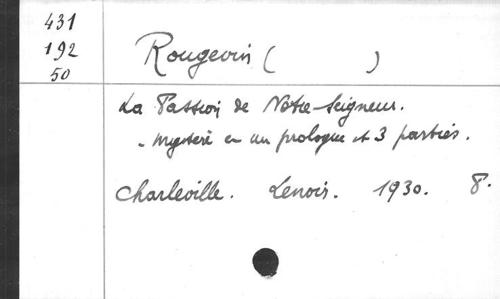 431
192
50
Rougevin (                )
La Passion de Notre-Seigneur.
- mystère en un prologue et 3 parties.
Charleville. Lenoir. 1930. 8.